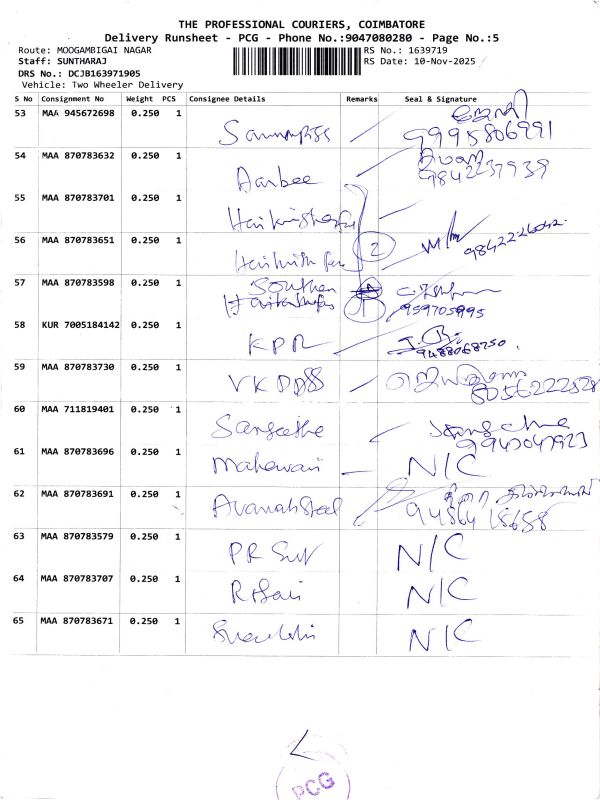 THE PROFESSIONAL COURIERS, COIMBATORE
Delivery Runsheet - PCG - Phone No.:9047080280 - Page No.:5
Route: MOOGAMBIGAI NAGAR RS No.: 1639719
Staff: SUNTHARAJ RS Date: 10-Nov-2025
DRS No.: DCJB163971905
Vehicle: Two Wheeler Delivery
S No Consignment No Weight PCS Consignee Details Remarks Seal & Signature
53 MAA 945672698 0.250 1
54 MAA 870783632 0.250 1 Aarbee 9842237939
55 MAA 870783701 0.250 1
56 MAA 870783651 0.250 1 2
57 MAA 870783598 0.250 1 Southern 959705995
58 KUR 7005184142 0.250 1 KPR 9488068750
59 MAA 870783730 0.250 1 8056222528
60 MAA 711819401 0.250 1 Sangeetha 9947047923
61 MAA 870783696 0.250 1 N/C
62 MAA 870783691 0.250 1 Steel
63 MAA 870783579 0.250 1 N/C
64 MAA 870783707 0.250 1 N/C
65 MAA 870783671 0.250 1 N/C
PCG